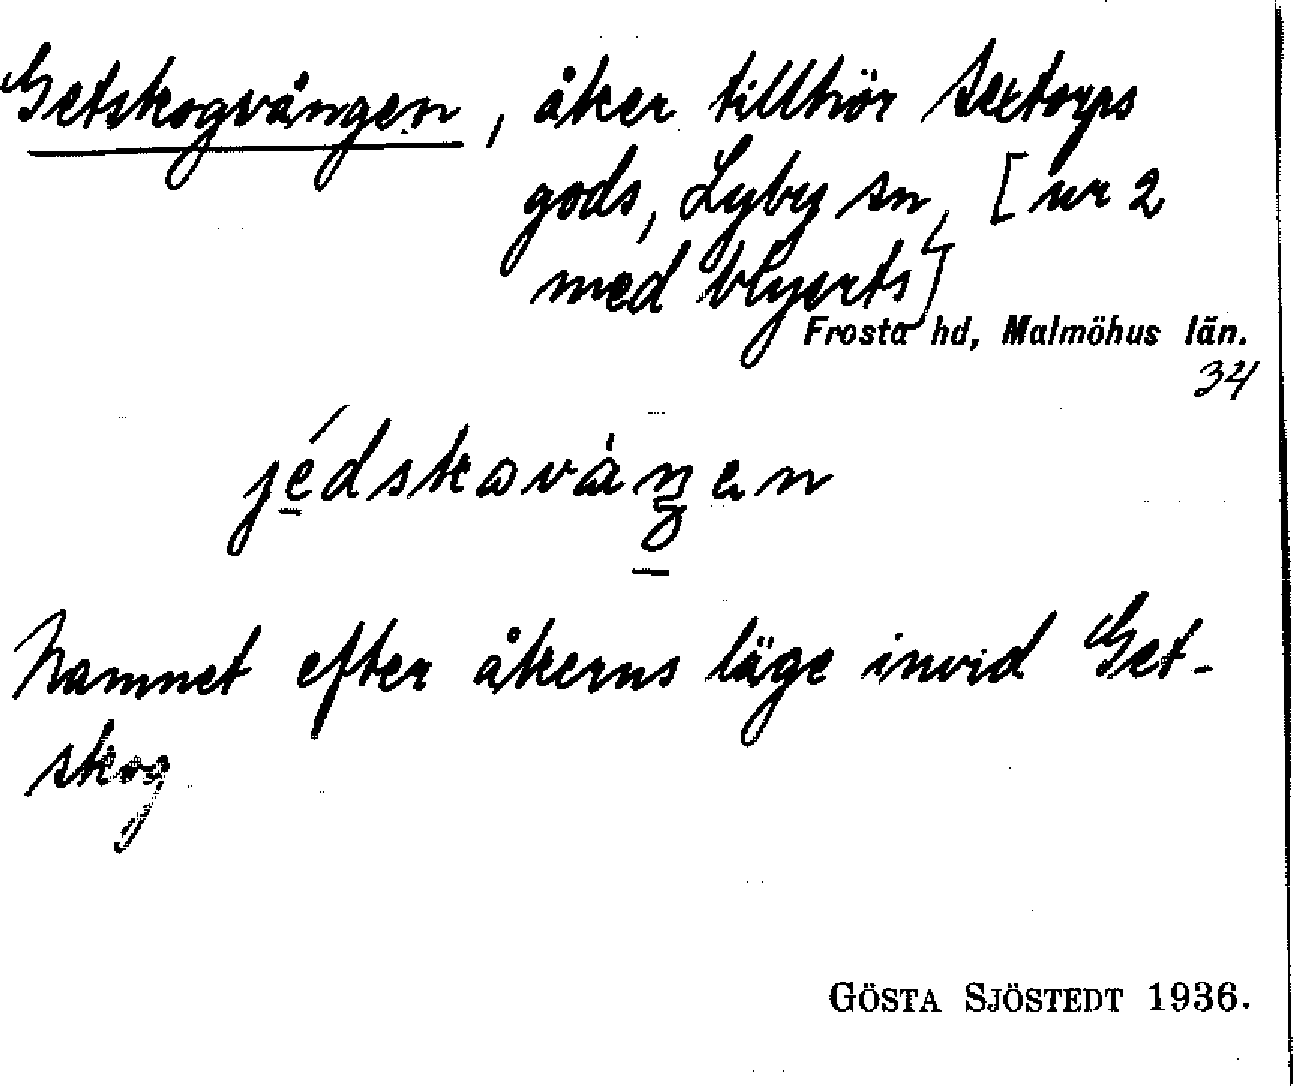 Getskogvången, åker tillhör Sextorps
gods, Lyby sn, [nr 2
med blyerts]
Frosta hd, Malmöhus län.
34
Namnet efter åkerns läge invid Get-
skog
GÖSTA SJÖSTEDT 1936.